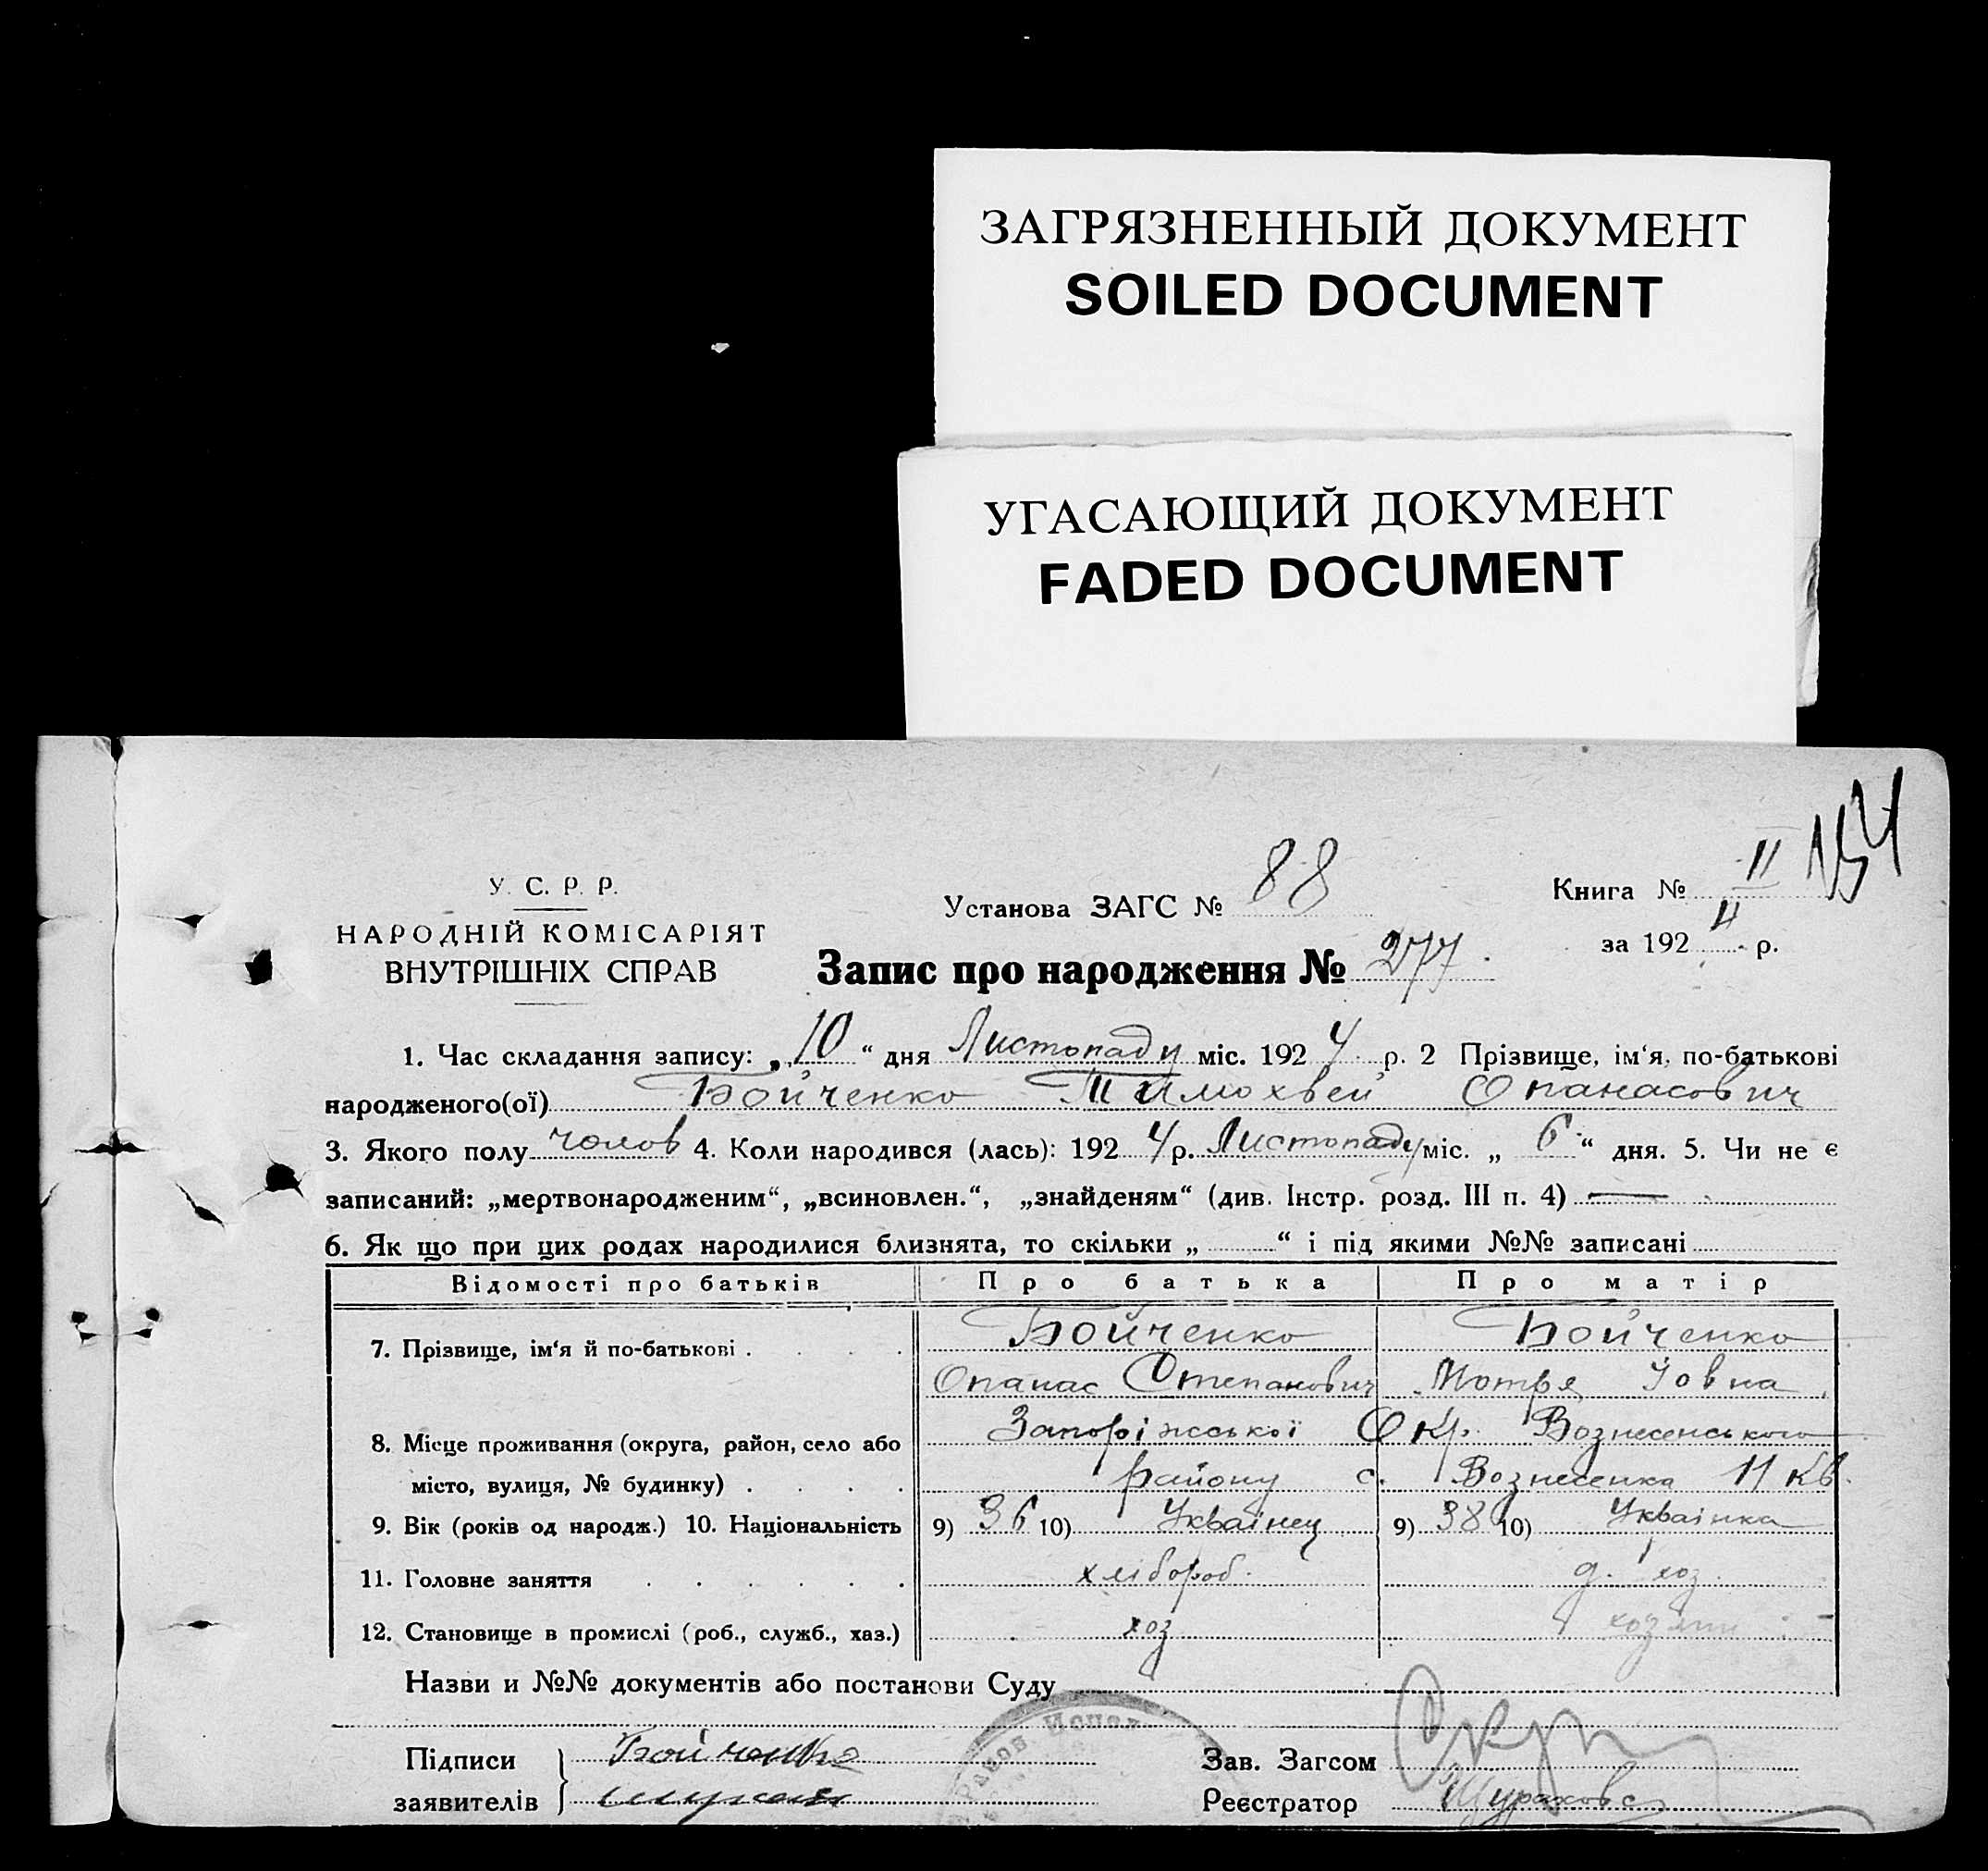 ЗАГРЯЗНЕННЫЙ ДОКУМЕНТ
SOILED DOCUMENT
УГАСАЮЩИЙ ДОКУМЕНТ
FADED DOCUMENT
154
У. С. Р. Р.
НАРОДНІЙ КОМІСАРІЯТ
ВНУТРІШНІХ СПРАВ
Установа ЗАГС № 88
Книга № II
за 1924 р.
Запис про народження № 277.
1. Час складання запису: „10“ дня Листопаду міс. 1924 р. 2 Прізвище, ім‘я, по-батькові
народженого(ої) Бойченко Тимохвей Опанасович
3. Якого полу чолов 4. Коли народився (лась): 1924 р. Листопаду міс. „6“ дня. 5. Чи не є
записаний: „мертвонародженим“, „всиновлен.“, „знайденям“ (див. Інстр. розд. III п. 4) —
6. Як що при цих родах народилися близнята, то скільки „ “ і під якими №№ записані
Відомості про батьків Про батька Про матір
7. Прізвище, ім‘я й по-батькові . Бойченко Бойченко
Опанас Степанович Мотря Іовна
8. Місце проживання (округа, район, село або Запоріжської Окр. Вознесенського
місто, вулиця, № будинку) . району с. Вознесенка 11 кв.
9. Вік (років од народж.) 10. Національність 9) 36 10) Украінец 9) 38 10) Украінка
11. Головне заняття хлібороб. д. хоз.
12. Становище в промислі (роб., служб., хаз.) хоз
Назви и №№ документів або постанови Суду
Районн Испол
Підписи Бойченко
заявителів
Зав. Загсом
Реєстратор